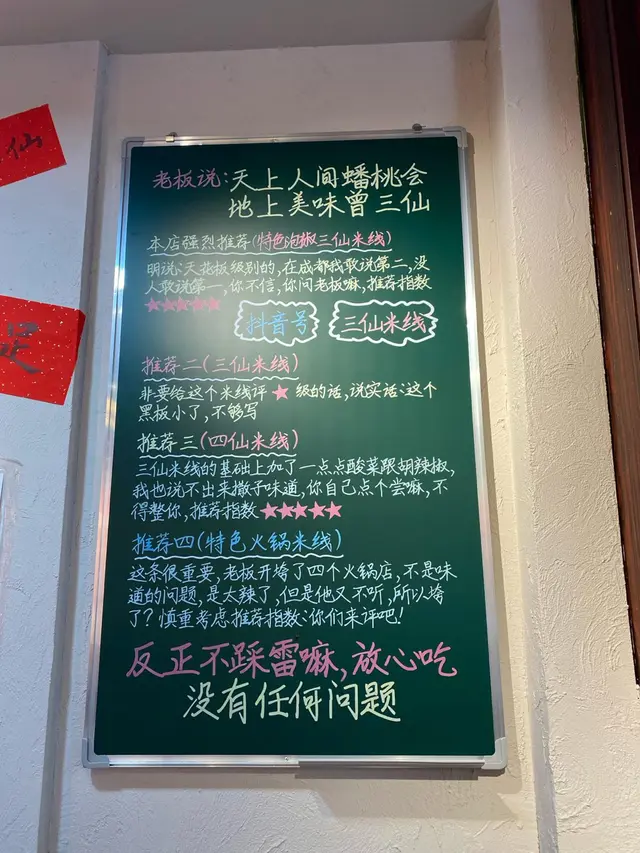 仙
足
老板说:天上人间蟠桃会
地上美味曾三仙
本店强烈推荐(特色泡椒三仙米线)
明说:天花板级别的,在成都我敢说第二,没
人敢说第一,你不信,你问老板嘛,推荐指数
★★★★★
抖音号 三仙米线
推荐二(三仙米线)
非要给这个米线评★级的话,说实话:这个
黑板小了,不够写
推荐三(四仙米线)
三仙米线的基础上加了一点点酸菜跟胡辣椒,
我也说不出来撒子味道,你自己点个尝嘛,不
得整你,推荐指数★★★★★
推荐四(特色火锅米线)
这条很重要,老板开垮了四个火锅店,不是味
道的问题,是太辣了,但是他又不听,所以垮
了?慎重考虑推荐指数:你们来评吧!
反正不踩雷嘛,放心吃
没有任何问题